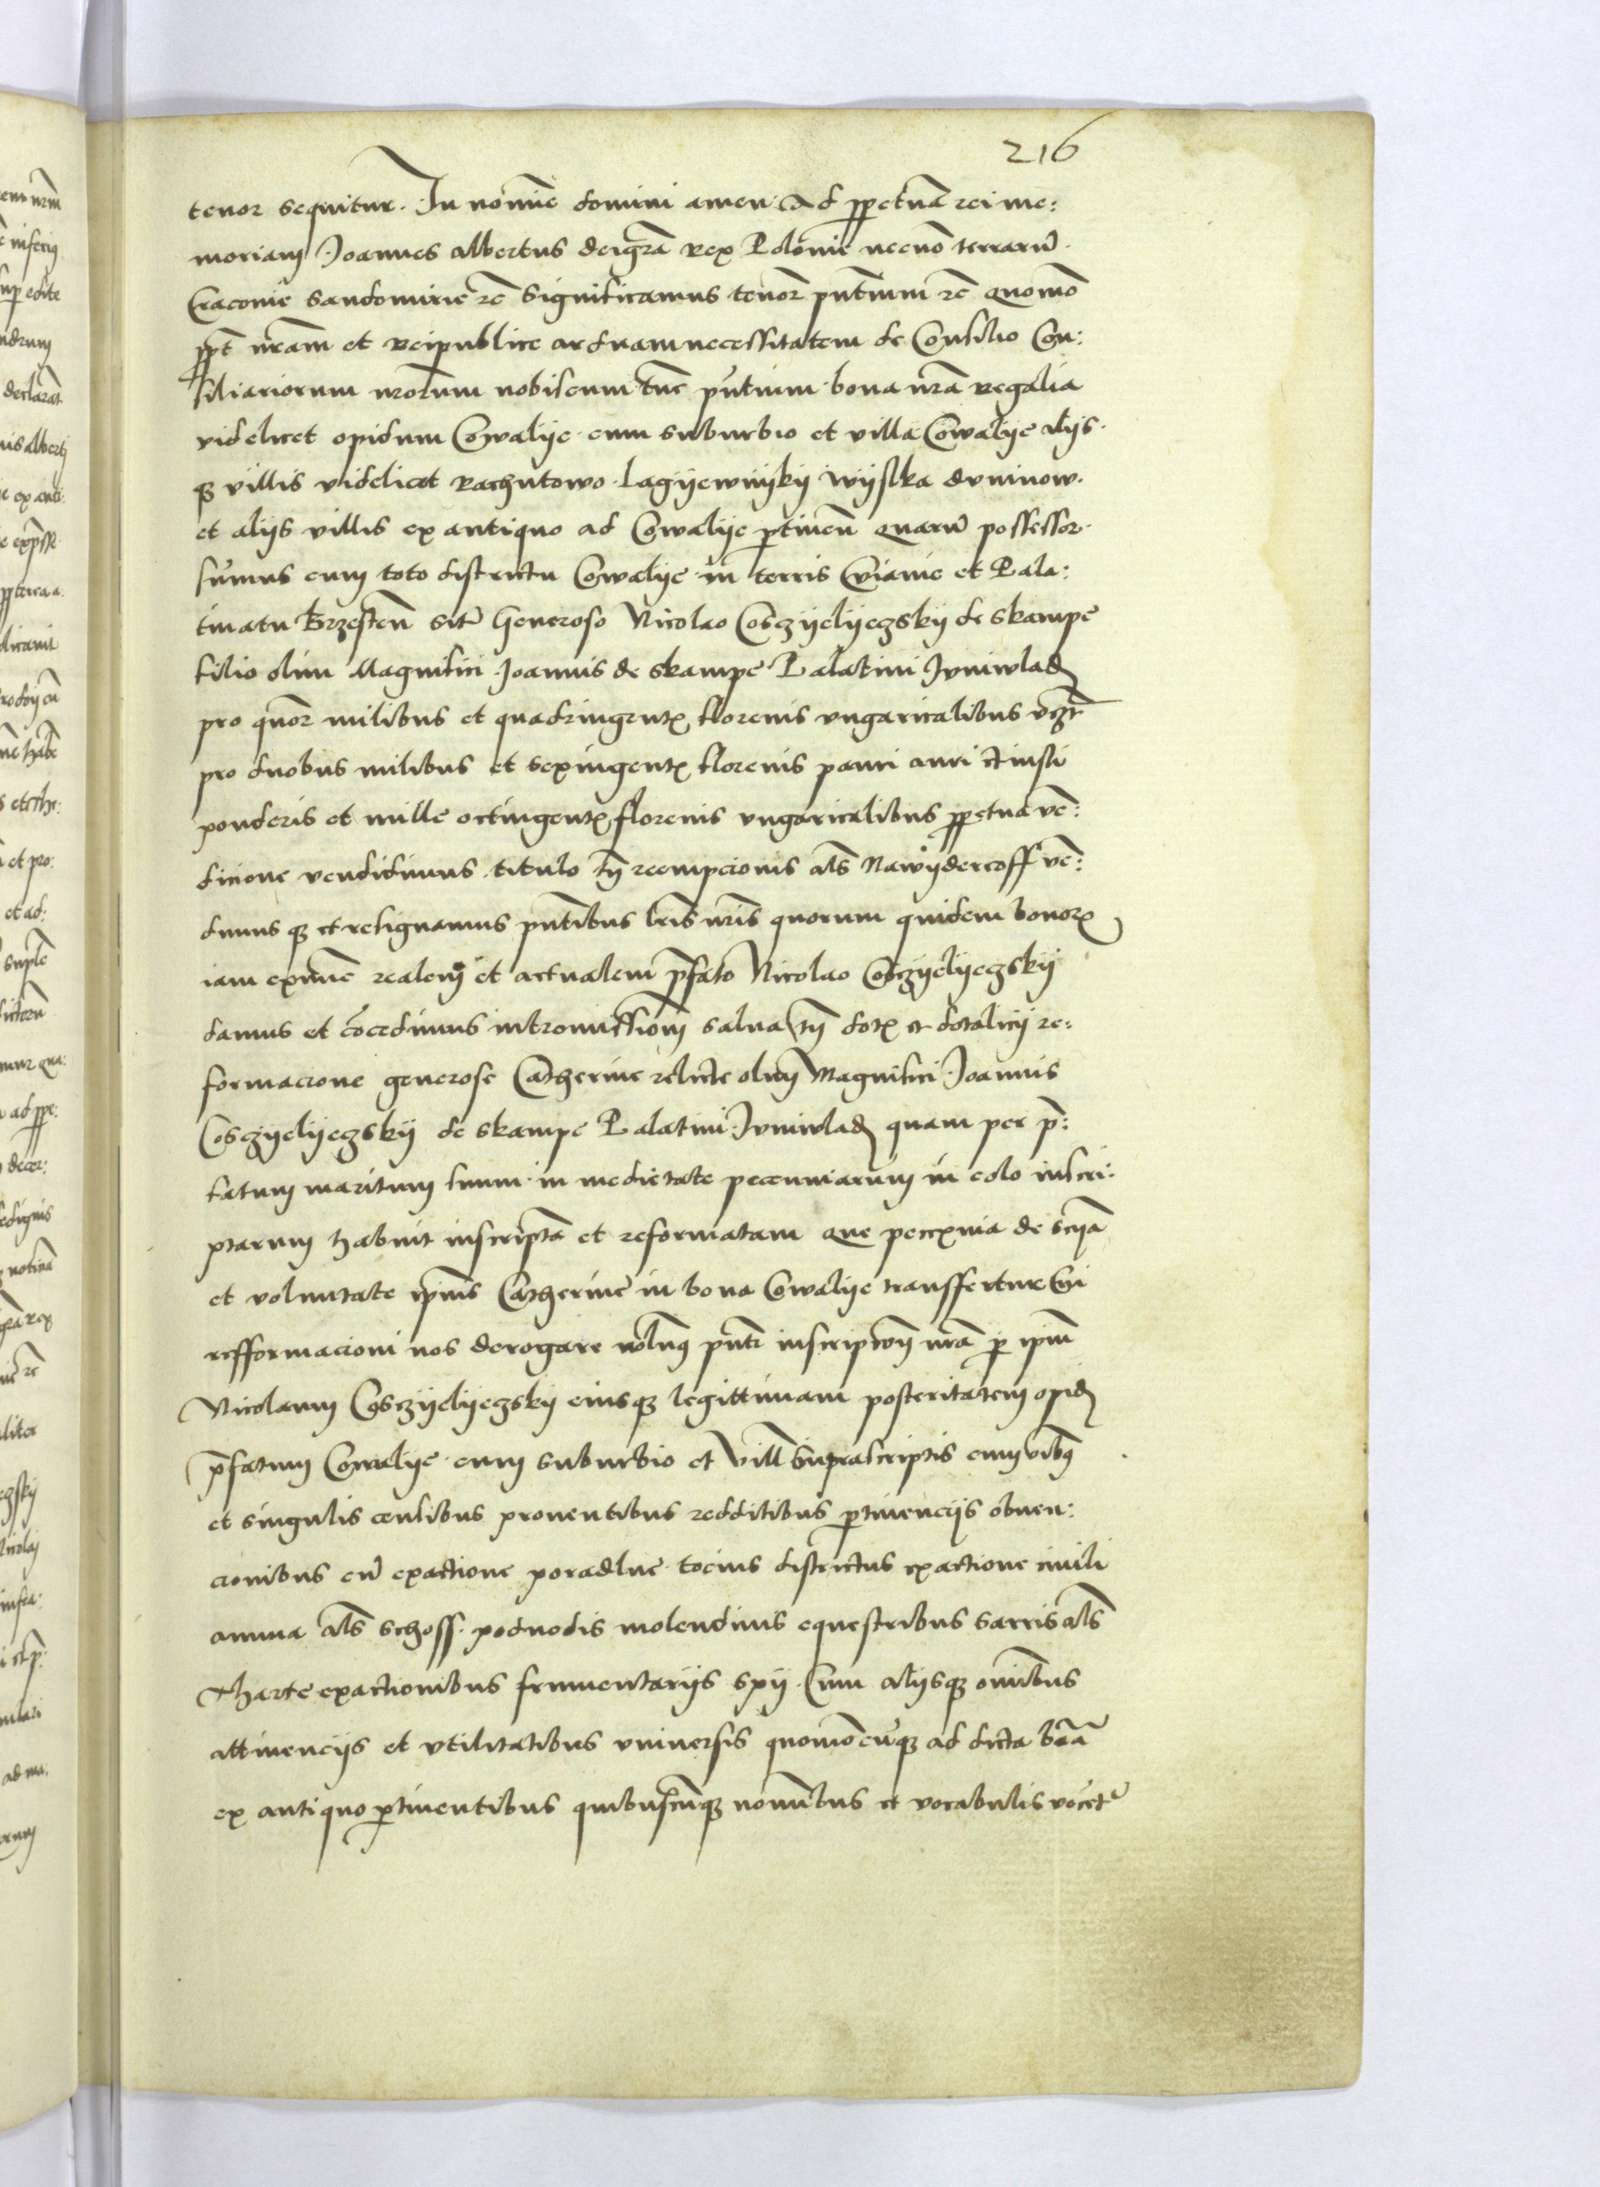 216
tenor sequitur. In nomīe domini amen. Ad ꝑpetuā rei me:
moriam Joannes albertus dei grā Rex Polonie necnō terrarū.
Cracovie Sandomirie rē significamus tenor pn̄tium rē quomō
ppt nr̄am et Reipublice arduam necessitatem de Consilio Con:
siliariorum nr̄orum nobiscum tūc pn̄tium bona nr̄a Regalia
videlicet opidum Cowalÿe cum suburbio et villa Cowalÿe alÿs.
qꝫ villis videlicet Rachutowo. Lagÿewnÿkÿ Wÿslka duninow.
et alÿs villis ex antiquo ad Cowalÿe ꝑtineñ quarū possessor.
sumus cum toto districtu Cowalÿe in terris Cuiavie et Pala:
tinatu Brzesteñ sitꝭ Generoso Nicolao Cosczÿelÿeczskÿ de skampe
filio olim Magnifici Joannis de skampe Palatini Juniwlad
pro quor milibus et quadringentꝭ florenis ungaricalibus vꝫt
pro duobus milibus et sexingentꝭ florenis pauri auri et iusti
ponderis et mille octingentꝭ florenis ungaricalibus ꝑpetua vē:
dicione vendidimus titulo tñ reempcionis als Nawÿdercoff vē:
dimus qꝫ et resignamus pn̄tibus lr̄is nr̄is quorum quidem bonorꝭ
iam exnūc realem et actualem p̄fato Nicolao Cosczÿelÿeczskÿ
damus et cōcedimus intromissionem salva tñ dotꝭ et dotalicÿ re:
formacione generose Catherine relicte olim Magnifici Joannis
Cosczÿelÿeczskÿ de skampe Palatini Juniwlad quam per p̄:
fatum maritum suum in medietate pecuniarum in colo inscri:
ptarum habuit inscriptā et reformatam que pecunia de sciā
et voluntate ipius Catherine in bona Cowalÿe transffertur Cui
refformacioni nos derogare nolumus pn̄ti inscripcōnem nrā ꝑ ipm̄
Nicolaum Cosczÿelÿeczskÿ eiusqꝫ legittimam posteritatem opid
p̄fatum Cowalÿe cum suburbio et Vill Suprascriptis cum oibus
et singulis censibus proventibus redditibus ꝑtinencÿs obven:
cionibus cū exactione poradlne tocius districtus exactione civili
annua als schoss. podvodis molendinis equestribus sarris als
Tharte exactionibus frumentarÿs spÿ. Cum alÿsqꝫ omībus
attinencÿs et utilitatibus universis quomōcūqꝫ ad dicta bōa
ex antiquo ꝑtinentibus quibuscūqꝫ nomībus et vocabulis vocētꝭ